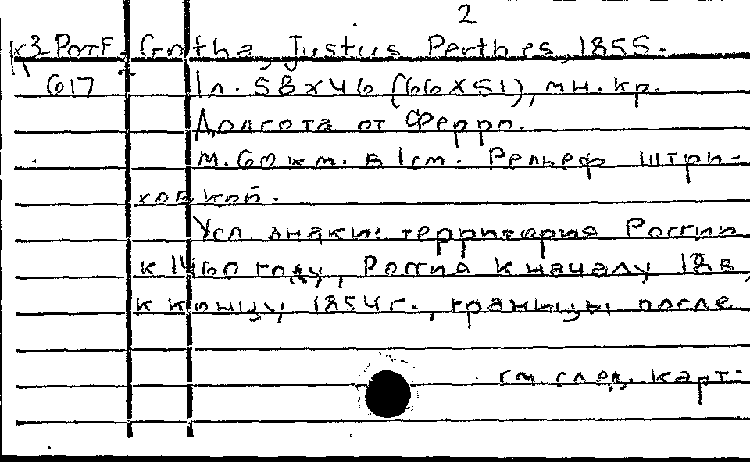 2
К3-РоГF Gotha, Justus Perthes, 1855.
617 1л. 58х46 (66х51), мн. кр.
Долгота от Ферро.
М. 60 км. в 1 см. Рельеф штри-
ховкой.
Усл. знаки: территория России
к 1460 году, Россия к началу 18в,
к концу 1854 г., границы после
см. след. карт-